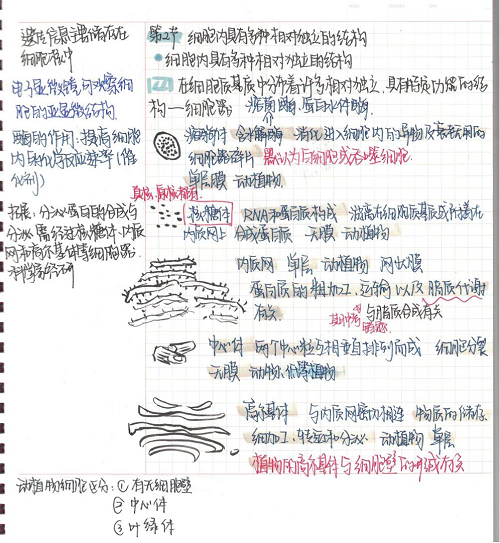 遗传信息主要储存在
细胞核中
电子显微镜可观察细
胞的亚显微结构
酶的作用:提高细胞
内生化学反应速率(催
化剂)
拓展:分泌蛋白的合成与
分泌需经过核糖体、内质
网和高尔基体等细胞器
第2节 细胞内具有多种相对独立的结构
细胞内具有多种相对独立的结构
在细胞质基质中分布着许多相对独立、具有特定功能的结
构——细胞器
溶菌酶、蛋白水解酶
溶酶体 含水解酶 消化进入细胞内的异物及衰老无用的
细胞器碎片
单层膜 动植物
真核、原核都有
核糖体 RNA和蛋白质构成 游离在细胞质基质或附着在
内质网上 合成蛋白质 无膜 动植物
内质网 单层 动植物 网状膜
蛋白质的粗加工、运输以及脂质代谢
有关
与脂质合成有关
中心体 两个中心粒互相垂直排列而成 细胞分裂
无膜 动物、低等植物
高尔基体 与内质网密切相连 物质的储存、
细加工、转运和分泌 动植物 单层
植物的高尔基体与细胞壁的形成有关
动植物细胞区分:① 有无细胞壁
② 中心体
③ 叶绿体